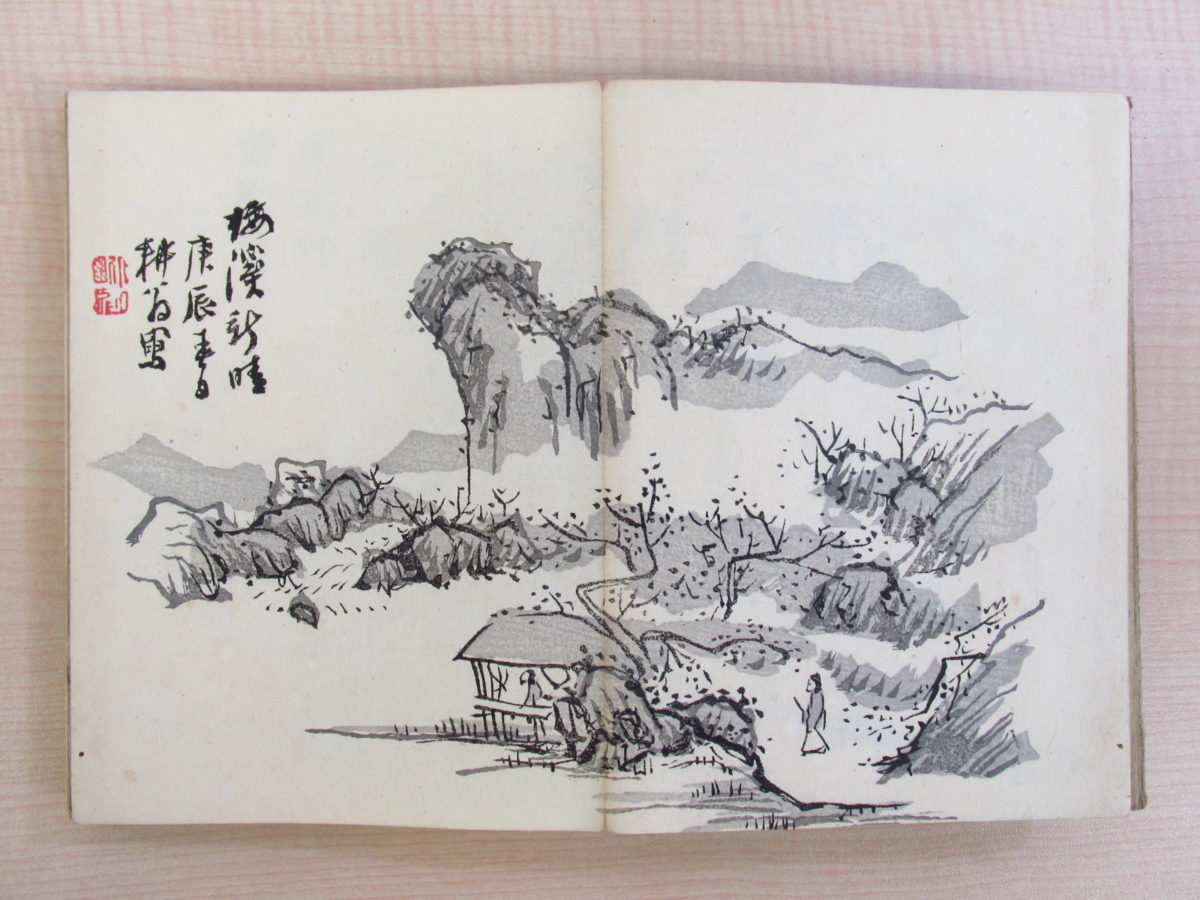 梅溪新晴
庚辰春日
耕翁寫